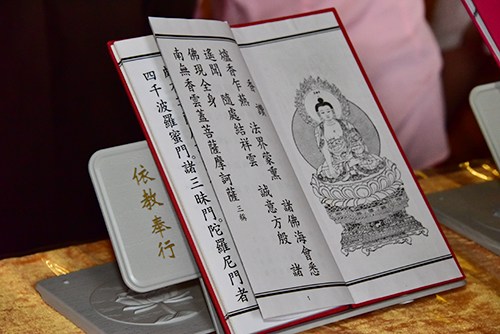 香讚
爐香乍熱 法界蒙熏 諸佛海會悉
遙聞 隨處結祥雲 誠意方殷 諸
佛現全身
南無香雲蓋菩薩摩訶薩 三稱
1
四千波羅蜜門。諸三昧門。陀羅尼門者
依教奉行